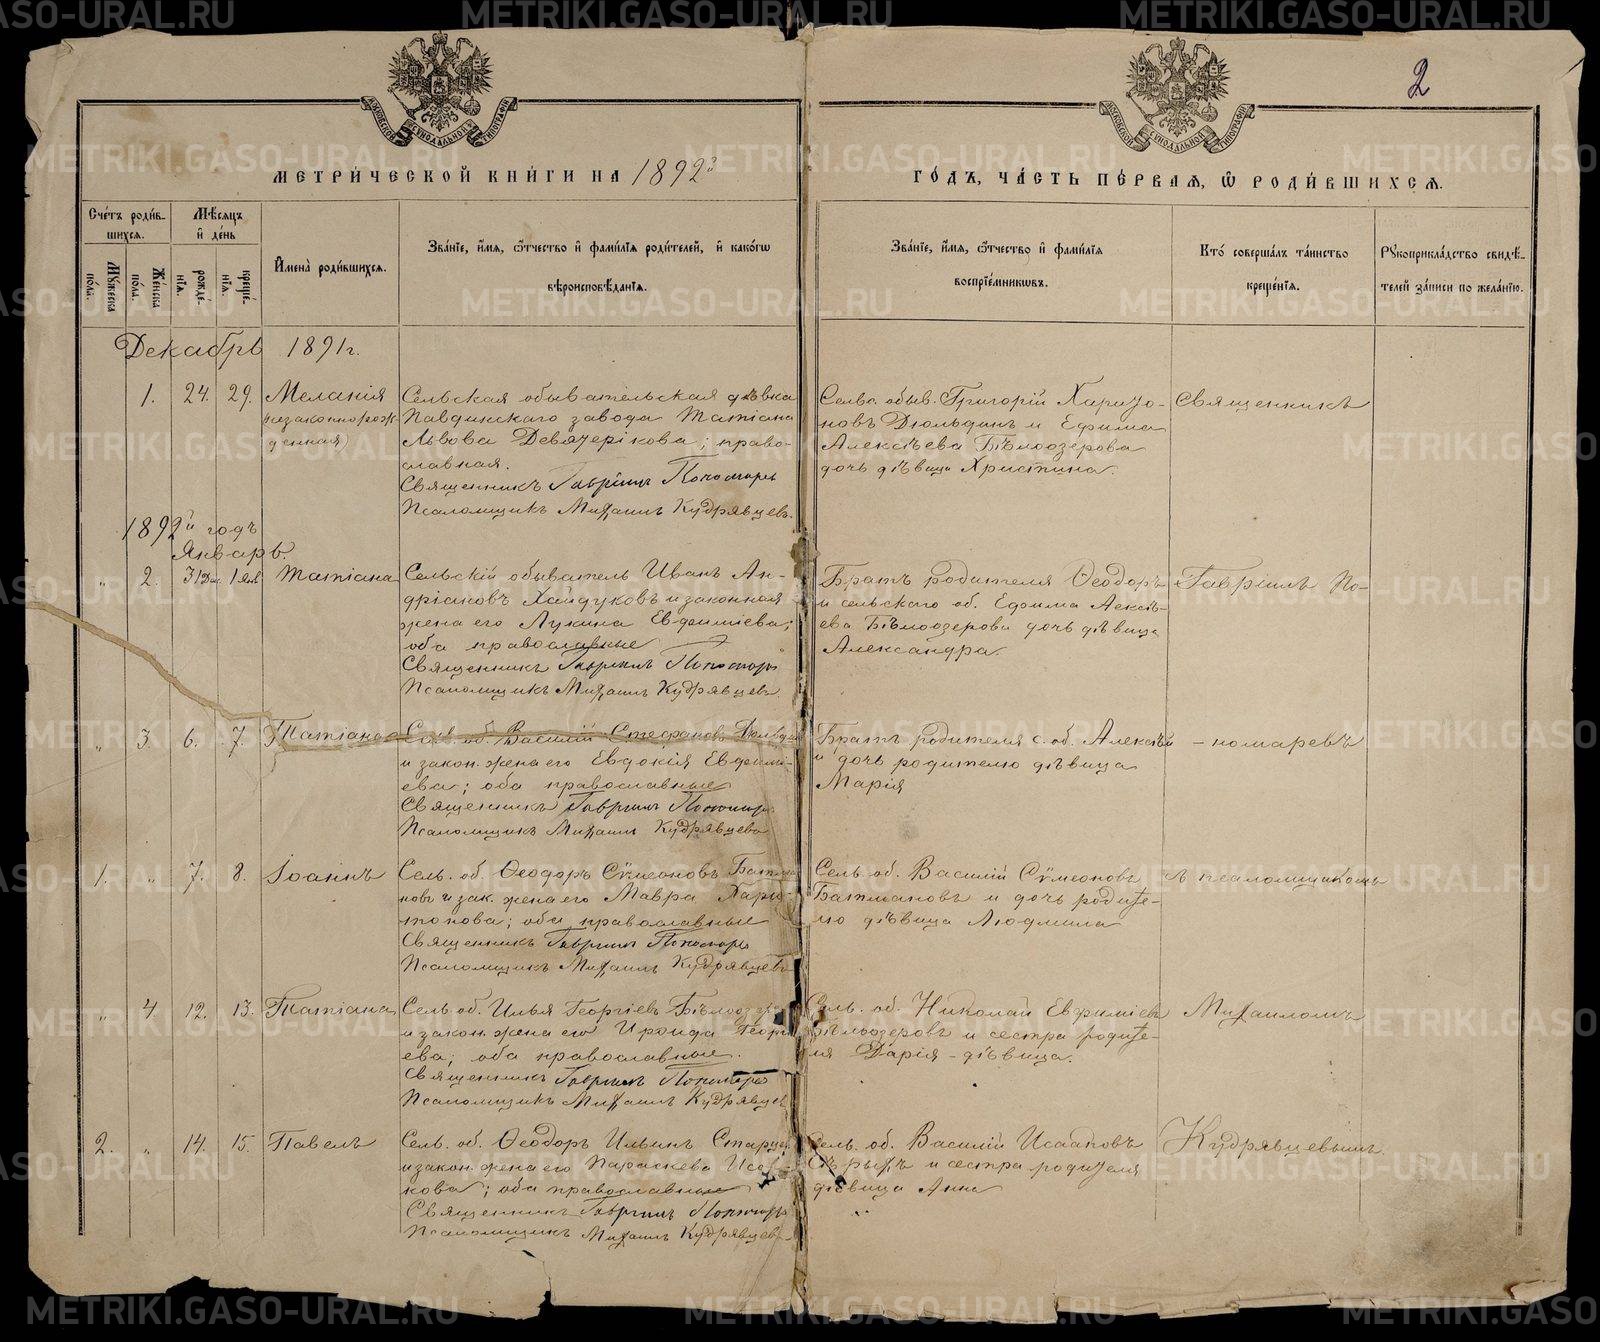 METRIKI.GASO-URAL.RU
2
МОСКОВСКОЙ СѴНОДАЛЬНОЙ ТИПОГРАФІИ
МОСКОВСКОЙ СѴНОДАЛЬНОЙ ТИПОГРАФІИ
МЕТРИ́ЧЕСКОЙ КНИ́ГИ НА 1892й
ГО́ДЪ, ЧА́СТЬ ПЕ́РВАЯ, Ѡ РОДИ́ВШИХСЯ.
Сче́тъ роди́в-
шихся.
Му́жеска
по́ла.
Же́нска
по́ла.
Мѣ́сяцъ
и де́нь
рожде́-
нія.
креще́-
нія.
Имена̀ роди́вшихся.
Зва́ніе, и́мя, ѻ́тчество и фами́лія роди́телей, и како́гѡ
вѣроисповѣ́данія.
Зва́ніе, и́мя, ѻ́тчество и фами́лія
воспріе́мникѡвъ.
Кто̀ соверша́лъ та́инство
креще́нія.
Рукоприкла́дство свидѣ́-
телей за́писи по жела́нію.
Декабрь 1891 г.
1. 24. 29. Меланія
незаконнорож-
денная)
Сельская обывательская дѣвка
Павдинскаго завода Татіана
Львова Девятерікова; право-
славная.
Священникъ Гавріилъ Пономаревъ
Псаломщикъ Михаилъ Кудрявцевъ.
Сельс. обыв. Григорій Харито-
новъ Дюльдинъ и Ефима
Алексѣева Бѣлоозерова
дочь дѣвица Христина.
Священникъ
1892й годъ
Январь.
„ 2. 31 Дек. 1 Янв. Татіана
Сельскій обыватель Иванъ Ан-
дріановъ Хайдуковъ и законная
жена его Лукина Евфиміева;
оба православные
Священникъ Гавріилъ Пономаревъ
Псаломщикъ Михаилъ Кудрявцевъ
Братъ родителя Ѳеодоръ
и сельскаго об. Ефима Алексѣ-
ева Бѣлоозерова дочь дѣвица
Александра.
Гавріилъ По-
„ 3. 6. 7. Татіана
Сельс. об. Василій Стефановъ Дюльдинъ
и закон. жена его Евдокія Евфимі-
ева; оба православные
Священникъ Гавріилъ Пономаревъ
Псаломщикъ Михаилъ Кудрявцевъ
Братъ родителя с. об. Алексѣй
и дочь родителю дѣвица
Марія
-номаревъ
1. „ 7. 8. Іоаннъ
Сель. об. Ѳеодоръ Сѵмеоновъ Батма-
новъ и зак. жена его Мавра Хари-
тонова; оба православные
Священникъ Гавріилъ Пономаревъ
Псаломщикъ Михаилъ Кудрявцевъ
Сель. об. Василій Сѵмеоновъ
Батмановъ и дочь родите-
лю дѣвица Людмила
съ псаломщикомъ
„ 4. 12. 13. Татіана
Сель. об. Илья Георгіевъ Бѣлоозеровъ
и закон. жена его Ираида Георгі-
ева; оба православные.
Священникъ Гавріилъ Пономаревъ
Псаломщикъ Михаилъ Кудрявцевъ
Сель. об. Николай Евфиміевъ
Бѣлоозеровъ и сестра родите-
ля Дарія - дѣвица.
Михаиломъ
2. „ 14. 15. Павелъ
Сель. об. Ѳеодоръ Ильинъ Старцевъ
и закон. жена его Параскева Иса-
кова; оба православные
Священникъ Гавріилъ Пономаревъ
Псаломщикъ Михаилъ Кудрявцевъ
Сель. об. Василій Исааковъ
Сѣрыхъ и сестра родителя
дѣвица Анна
Кудрявцевымъ.